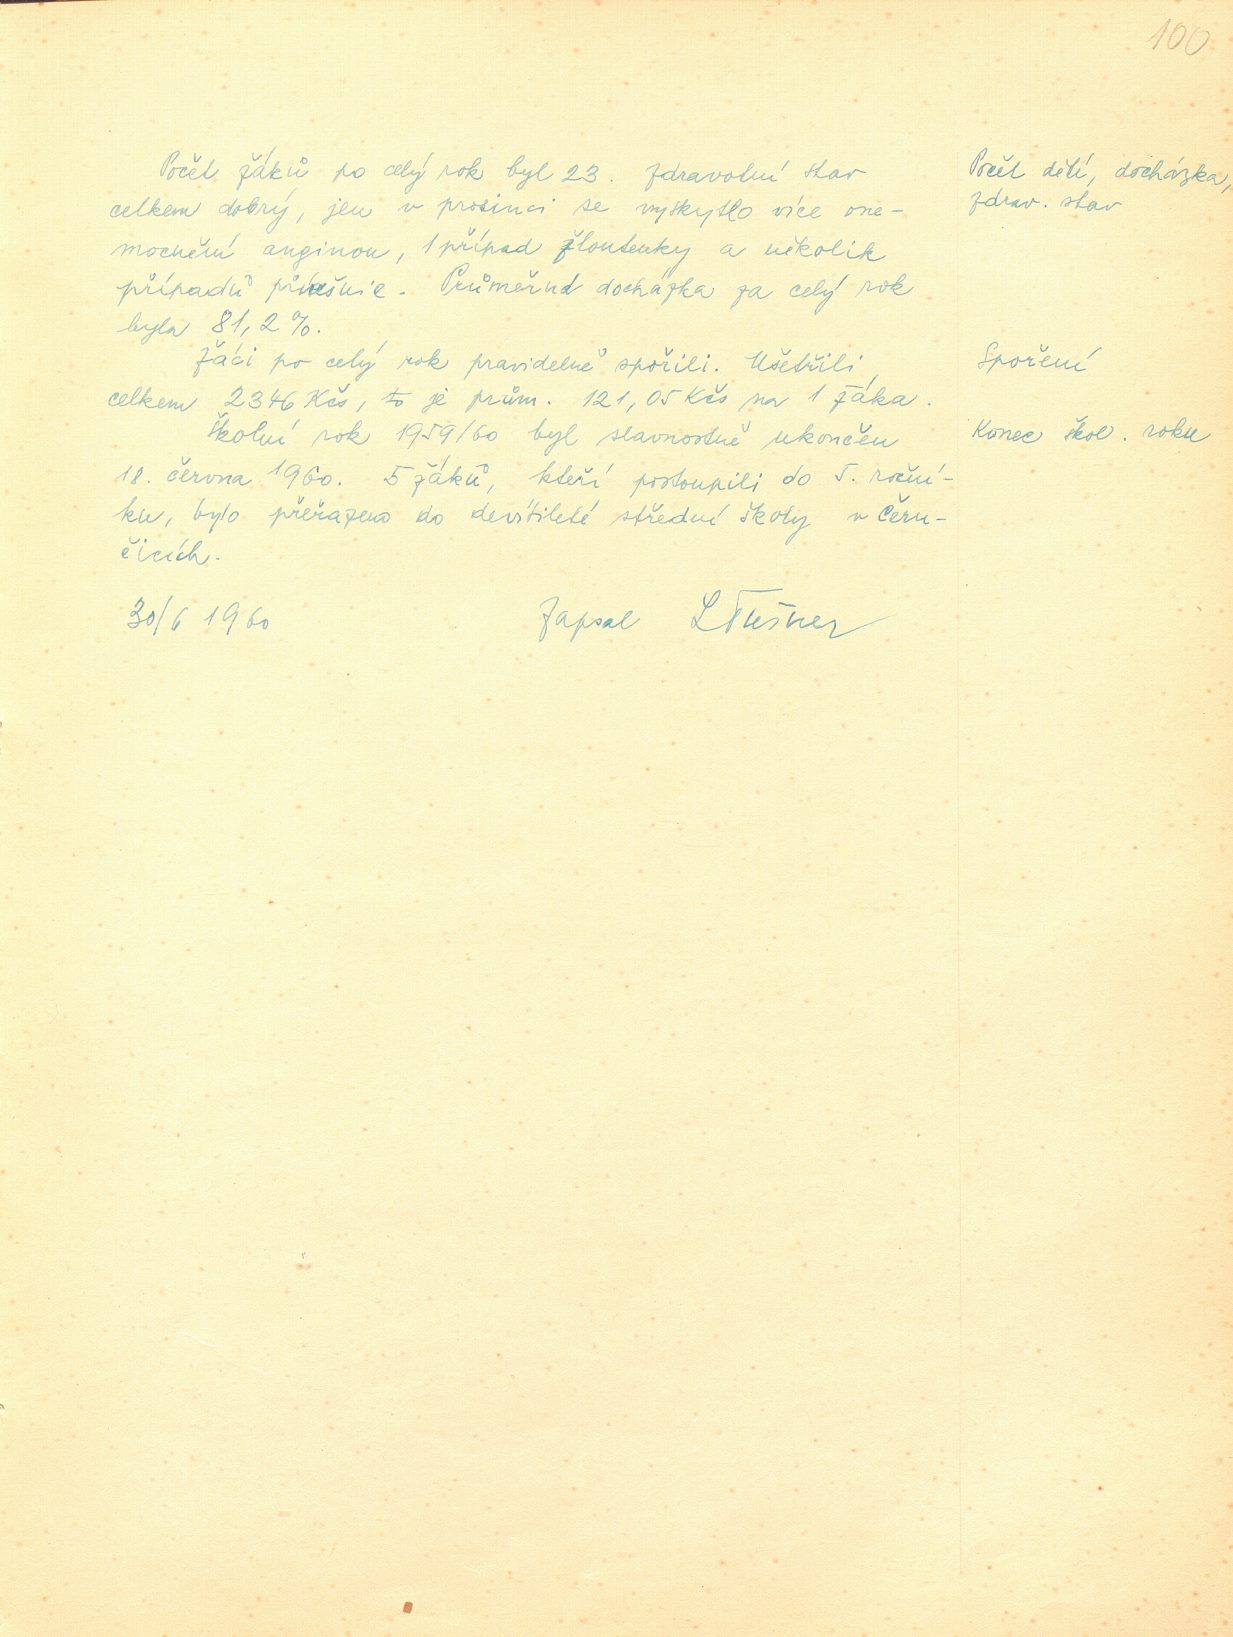 100
Počet žáků po celý rok byl 23. Zdravotní stav
celkem dobrý, jen v prosinci se vyskytlo více one-
mocnění anginou, 1 případ žloutenky a několik
případů příušnic. Průměrná docházka za celý rok
byla 81,2 %.
Žáci po celý rok pravidelně spořili. Ušetřili
celkem 2346 Kčs, to je prům. 121,05 Kčs na 1 žáka.
Školní rok 1959/60 byl slavnostně ukončen
18. června 1960. 5 žáků, kteří postoupili do 5. roční-
ku, bylo přeřazeno do devítileté střední školy v Čern-
čicích.
30/6 1960 Zapsal
Počet dětí, docházka,
zdrav. stav
Spoření
Konec škol. roku